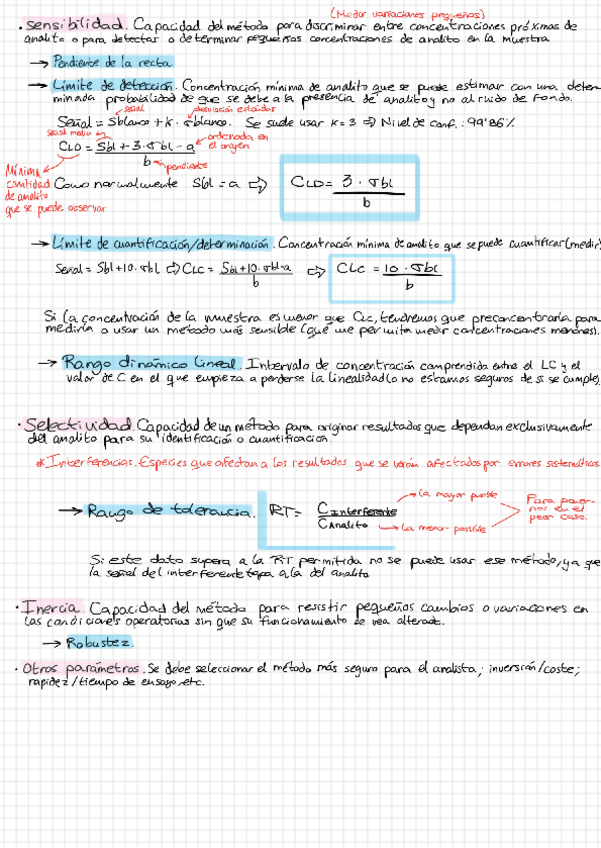 (Medir variaciones pequeñas)
· Sensibilidad. Capacidad del método para discriminar entre concentraciones próximas de
analito o para detectar o determinar pequeñas concentraciones de analito en la muestra
→ Pendiente de la recta
→ Límite de detección. Concentración mínima de analito que se puede estimar con una deter-
minada probabilidad de que se debe a la presencia de analito y no al ruido de fondo.
señal desviación estándar
Señal = Sblanco + K · σblanco. Se suele usar K = 3 ⇒ Nivel de conf.: 99'86%
señal media
CLD = Sbl + 3·σbl - a / b
ordenada en el origen
pendiente
Mínima cantidad de analito que se puede observar
Como normalmente Sbl = a ⇒ CLD = 3 · σbl / b
→ Límite de cuantificación/determinación. Concentración mínima de analito que se puede cuantificar (medir)
Señal = Sbl + 10·σbl ⇒ CLC = Sbl + 10·σbl - a / b ⇒ CLC = 10·σbl / b
Si la concentración de la muestra es menor que CLC, tendremos que preconcentrarla para
medirla o usar un método más sensible (que me permita medir concentraciones menores).
→ Rango dinámico lineal. Intervalo de concentración comprendida entre el LC y el
valor de C en el que empieza a perderse la linealidad (o no estamos seguros de si se cumple)
· Selectividad. Capacidad de un método para originar resultados que dependan exclusivamente
del analito para su identificación o cuantificación
* Interferencias. Especies que afectan a los resultados que se verán afectados por errores sistemáticos
→ Rango de tolerancia. RT = CInterferente / CAnalito
→ la mayor posible
→ la menor posible
Para ponernos en el peor caso.
Si este dato supera a la RT permitida no se puede usar ese método, ya que
la señal del interferente tapa a la del analito
· Inercia. Capacidad del método para resistir pequeños cambios o variaciones en
las condiciones operatorias sin que su funcionamiento se vea alterado.
→ Robustez.
· Otros parámetros. Se debe seleccionar el método más seguro para el analista; inversión/coste;
rapidez/tiempo de ensayo, etc.